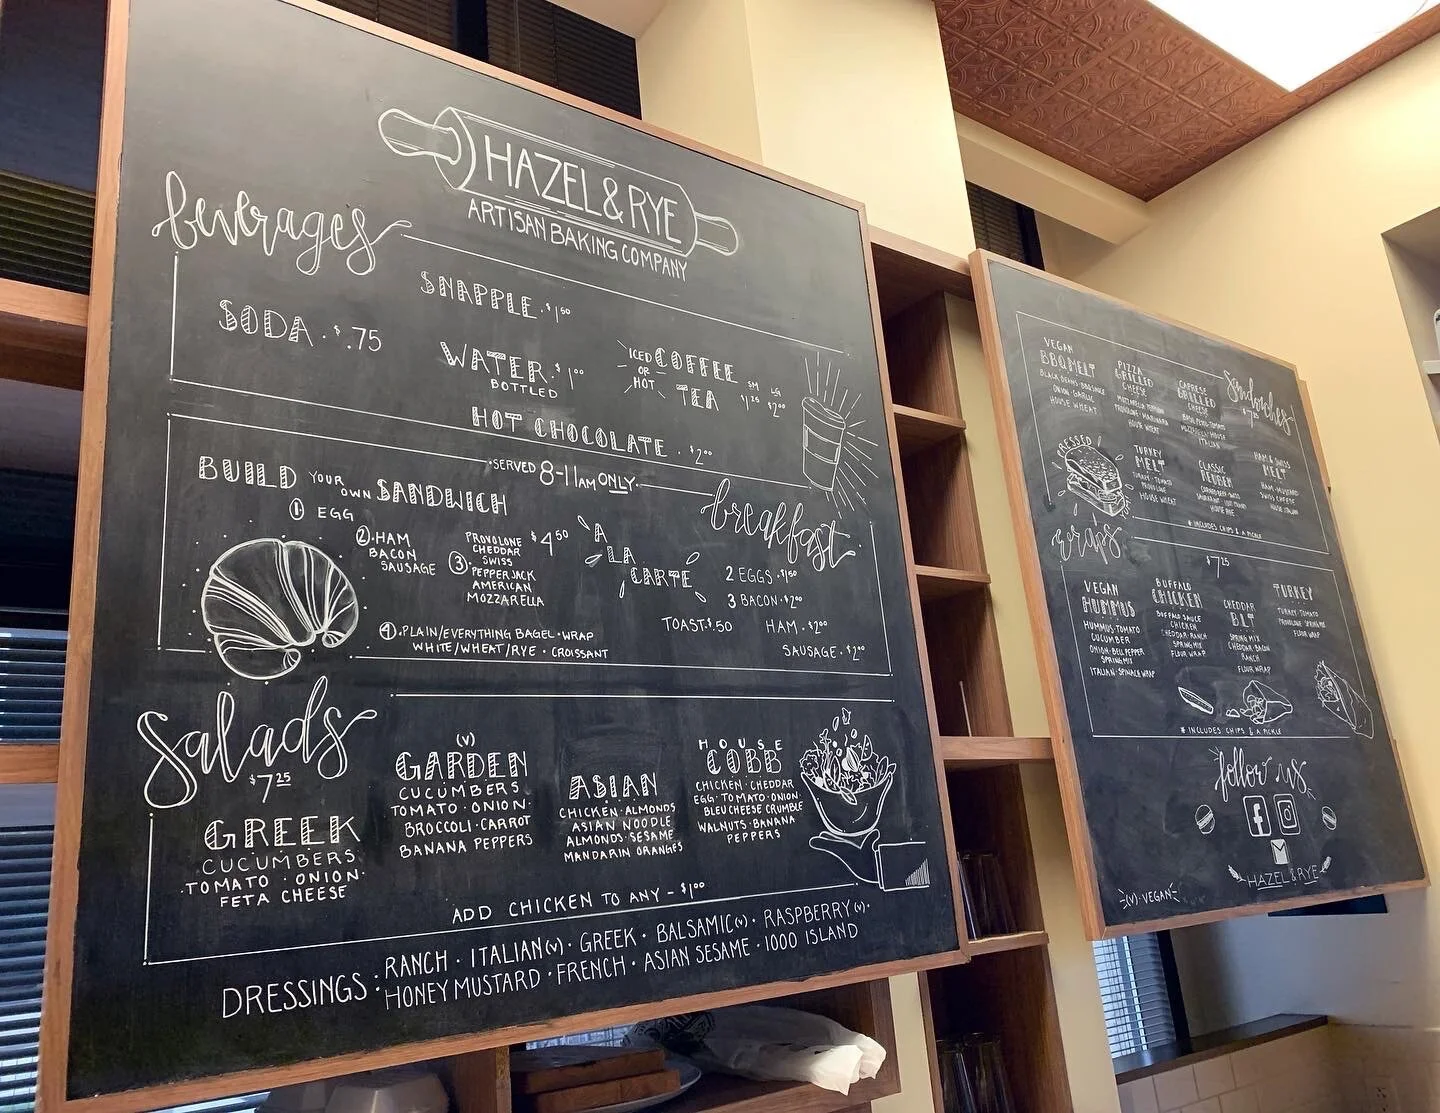 HAZEL & RYE
ARTISAN BAKING COMPANY
beverages
SNAPPLE · $1.50
SODA · $.75
WATER · $1.00
BOTTLED
ICED OR HOT
COFFEE
TEA
SM LG
$1.25 $2.00
HOT CHOCOLATE · $2.00
· SERVED 8-11AM ONLY ·
breakfast
BUILD YOUR OWN SANDWICH
① EGG
② · HAM
BACON
SAUSAGE
③ PROVOLONE
CHEDDAR
SWISS
PEPPERJACK
AMERICAN
MOZZARELLA
$4.50
④ · PLAIN/EVERYTHING BAGEL · WRAP
WHITE/WHEAT/RYE · CROISSANT
A
LA
CARTE
2 EGGS · $1.50
3 BACON · $2.00
TOAST · $.50
HAM · $2.00
SAUSAGE · $2.00
Salads
$7.25
GREEK
CUCUMBERS
· TOMATO · ONION ·
FETA CHEESE
(V)
GARDEN
CUCUMBERS
TOMATO · ONION ·
BROCCOLI · CARROT
BANANA PEPPERS
ASIAN
CHICKEN · ALMONDS
ASIAN NOODLE
ALMONDS · SESAME
MANDARIN ORANGES
HOUSE
COBB
CHICKEN · CHEDDAR
EGG · TOMATO · ONION ·
BLEU CHEESE CRUMBLE
WALNUTS · BANANA
PEPPERS
ADD CHICKEN TO ANY - $1.00
DRESSINGS :
RANCH · ITALIAN (V) · GREEK · BALSAMIC (V) · RASPBERRY (V) ·
HONEY MUSTARD · FRENCH · ASIAN SESAME · 1000 ISLAND
Sandwiches
$7.25
VEGAN
BBQ MELT
BLACK BEANS · BBQ SAUCE
ONION · GARLIC
HOUSE WHEAT
PIZZA
GRILLED
CHEESE
PROVOLONE · MARINARA
HOUSE WHEAT
CAPRESE
GRILLED
CHEESE
BASIL PESTO · TOMATO
MOZZARELLA · HOUSE
ITALIAN
PRESSED
TURKEY
MELT
TURKEY · TOMATO
PROVOLONE
HOUSE WHEAT
CLASSIC
REUBEN
CORNED BEEF · SWISS
HOUSE RYE
HAM & SWISS
MELT
HAM · MUSTARD
SWISS CHEESE
HOUSE ITALIAN
* INCLUDES CHIPS & A PICKLE
wraps
$7.25
VEGAN
HUMMUS
HUMMUS · TOMATO
CUCUMBER
ONION · BELL PEPPER
SPRING MIX
ITALIAN · SPINACH WRAP
BUFFALO
CHICKEN
BUFFALO SAUCE
CHICKEN
CHEDDAR · RANCH
SPRING MIX
FLOUR WRAP
CHEDDAR
BLT
SPRING MIX
CHEDDAR · BACON
RANCH
FLOUR WRAP
TURKEY
TURKEY · TOMATO
PROVOLONE · SPRING MIX
FLOUR WRAP
* INCLUDES CHIPS & A PICKLE
follow us
f
HAZEL & RYE
(V) · VEGAN